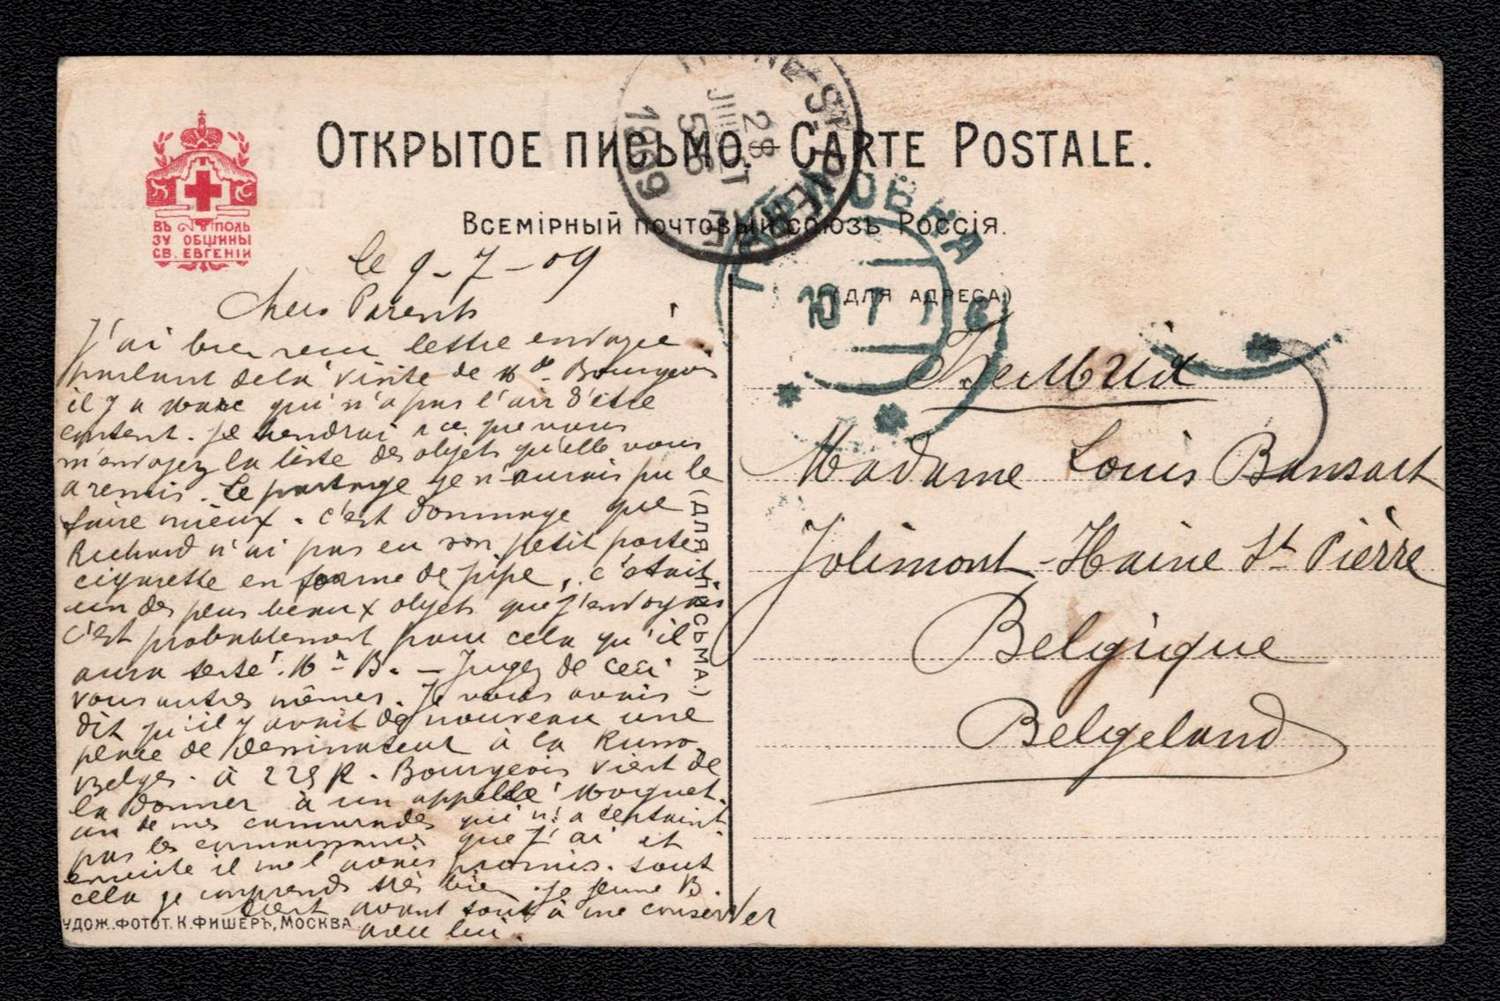 Открытое письмо. Carte Postale.
Всемірный почтовый союзъ Россія.
Въ пользу общины св. Евгеніи
1909
28
JUILLET
10 7
(для адреса)
(для письма.)
le 9-7-09
Chers Parents
J'ai bien reçu lettre envoyée
parlant de la visite de Mde Bourgeois
il y a marc qui n'a pas l'air d'être
content. Je tiendrai à ce que vous
m'envoyez la liste des objets qu'elle vous
a remis. Le partage je n'aurais pu le
faire mieux. C'est dommage que
Richard n'ai pas eu son petit porte
cigarette en forme de pipe, c'était
un des plus beaux objets que j'envoyais
c'est probablement pour cela qu'il
aura resté. Mr B. - Jugez de ceci
vous autres mêmes. Je vous avais
dit qu'il y avait de nouveau une
place de dessinateur à la Russo
Belge. à 225 R. Bourgeois vient de
la donner à un appellé
un de mes camarades qui n'a certaint
pas les connaissances que j'ai et
ensuite il me l'avais promis. tout
cela je comprends très bien. Je jeune B.
tient avant tout à me conserver
avec lui.
Бельгия
Madame Louis Bansart
Jolimont-Haine St Pièrre
Belgique
Belgeland
худож. фотот. К. Фишеръ, Москва